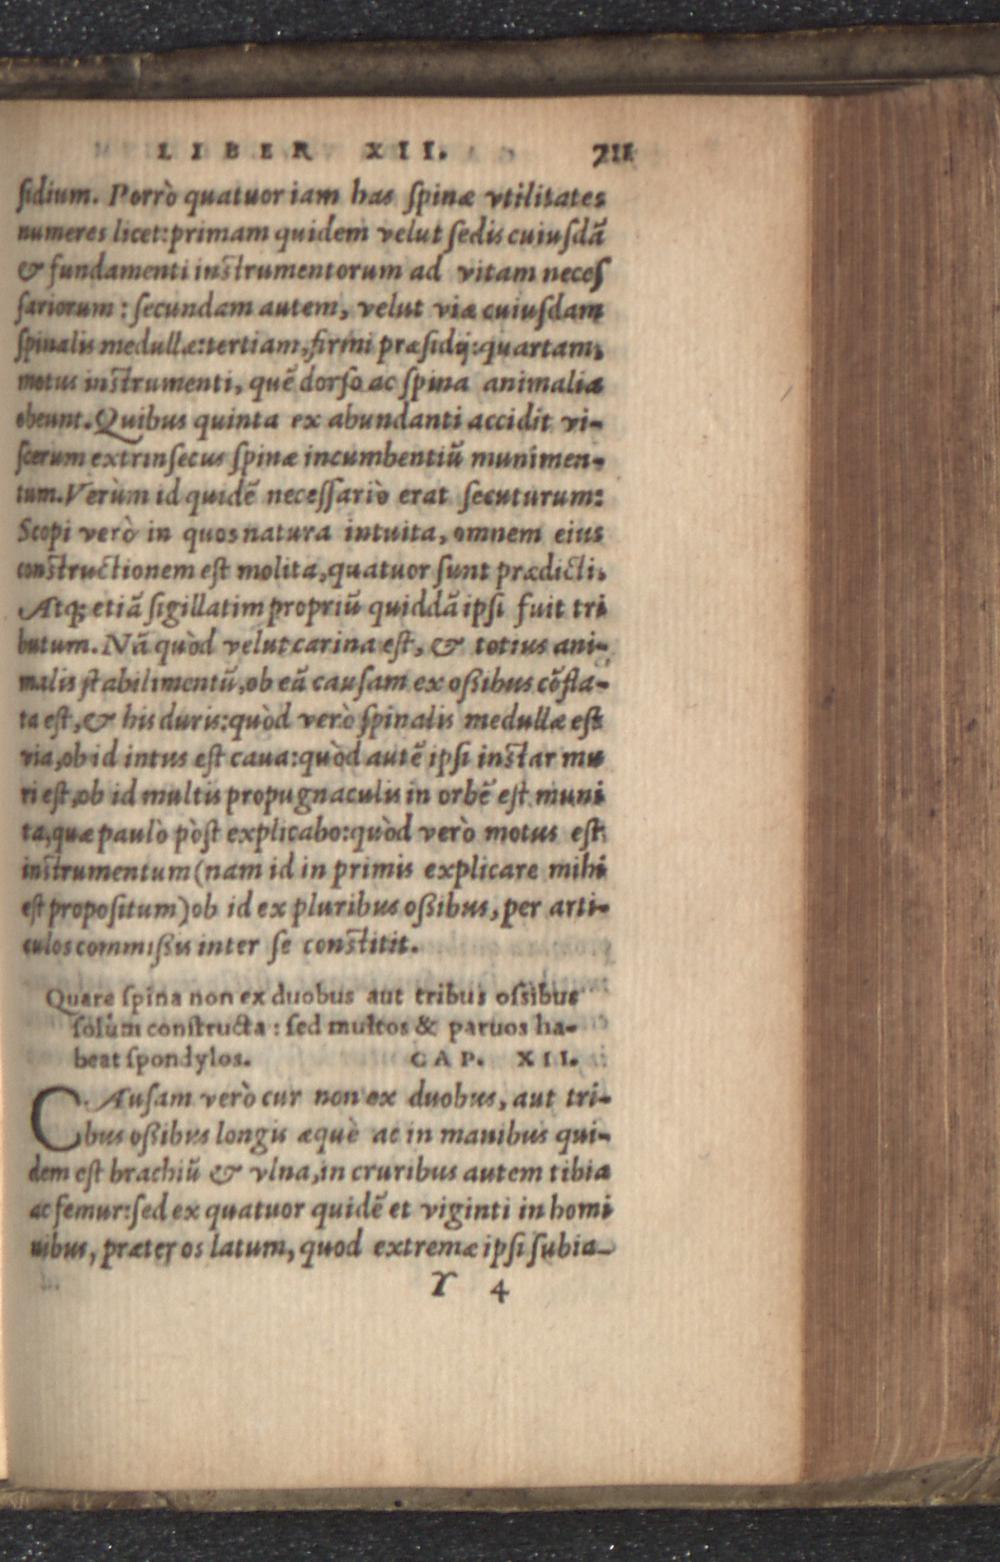 LIBER XII. 711
ſidium. Porrò quatuor iam has ſpinæ vtilitates
numeres licet:primam quidem velut ſedis cuiuſdā
& fundamenti inſtrumentorum ad vitam neceſ
ſariorum : ſecundam autem, velut viæ cuiuſdam
ſpinalis medullæ:tertiam,firmi præſidij:quartam,
motus inſtrumenti, quē dorſo ac ſpina animalia
obeunt.Quibus quinta ex abundanti accidit vi-
ſcerum extrinſecus ſpinæ incumbentiū munimen-
tum.Verùm id quidē neceſſariò erat ſecuturum:
Scopi verò in quos natura intuita, omnem eius
conſtructionem eſt molita,quatuor ſunt prædicti.
Atq; etiā ſigillatim propriū quiddā ipſi fuit tri
butum. Nā quòd velut carina eſt, & totius ani-
malis ſtabilimentū,ob eā cauſam ex oßibus cōfla-
ta eſt,& his duris:quòd verò ſpinalis medullæ eſt
via,ob id intus eſt caua:quòd autē ipſi inſtar mu
ri eſt,ob id multis propugnaculis in orbē eſt muni
ta,quæ paulò pòſt explicabo:quòd verò motus eſt
inſtrumentum(nam id in primis explicare mihi
eſt propoſitum)ob id ex pluribus oßibus,per arti-
culos commißis inter ſe conſtitit.
Quare ſpina non ex duobus aut tribus oſsibus
ſolùm conſtructa : ſed multos & paruos ha-
beat ſpondylos. CAP. XII.
CAuſam verò cur non ex duobus, aut tri-
bus oßibus longis æquè ac in manibus qui-
dem eſt brachiū & vlna,in cruribus autem tibia
ac femur:ſed ex quatuor quidē et viginti in homi
nibus, præter os latum, quod extremæ ipſi ſubia-
Y 4